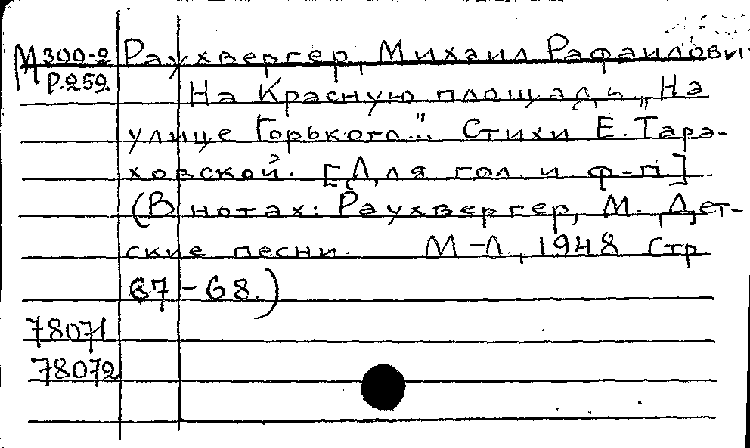 М 300-2 Раухвергер, Михаил Рафаилович
Р.252
На Красную площадь „На
улице Горького." Стихи Е. Тара-
ховской. [Для гол. и ф-п]
(В нотах: Раухвергер, М. Дет-
ские песни. М-Л, 1948 Стр
67-68.)
78071
78072